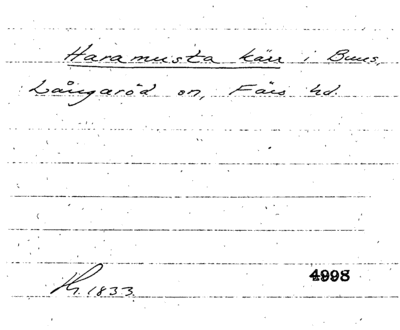 Haramusta kärr i Buus,
Långaröd sn, Färs hd.
4998
Kr. 1833.